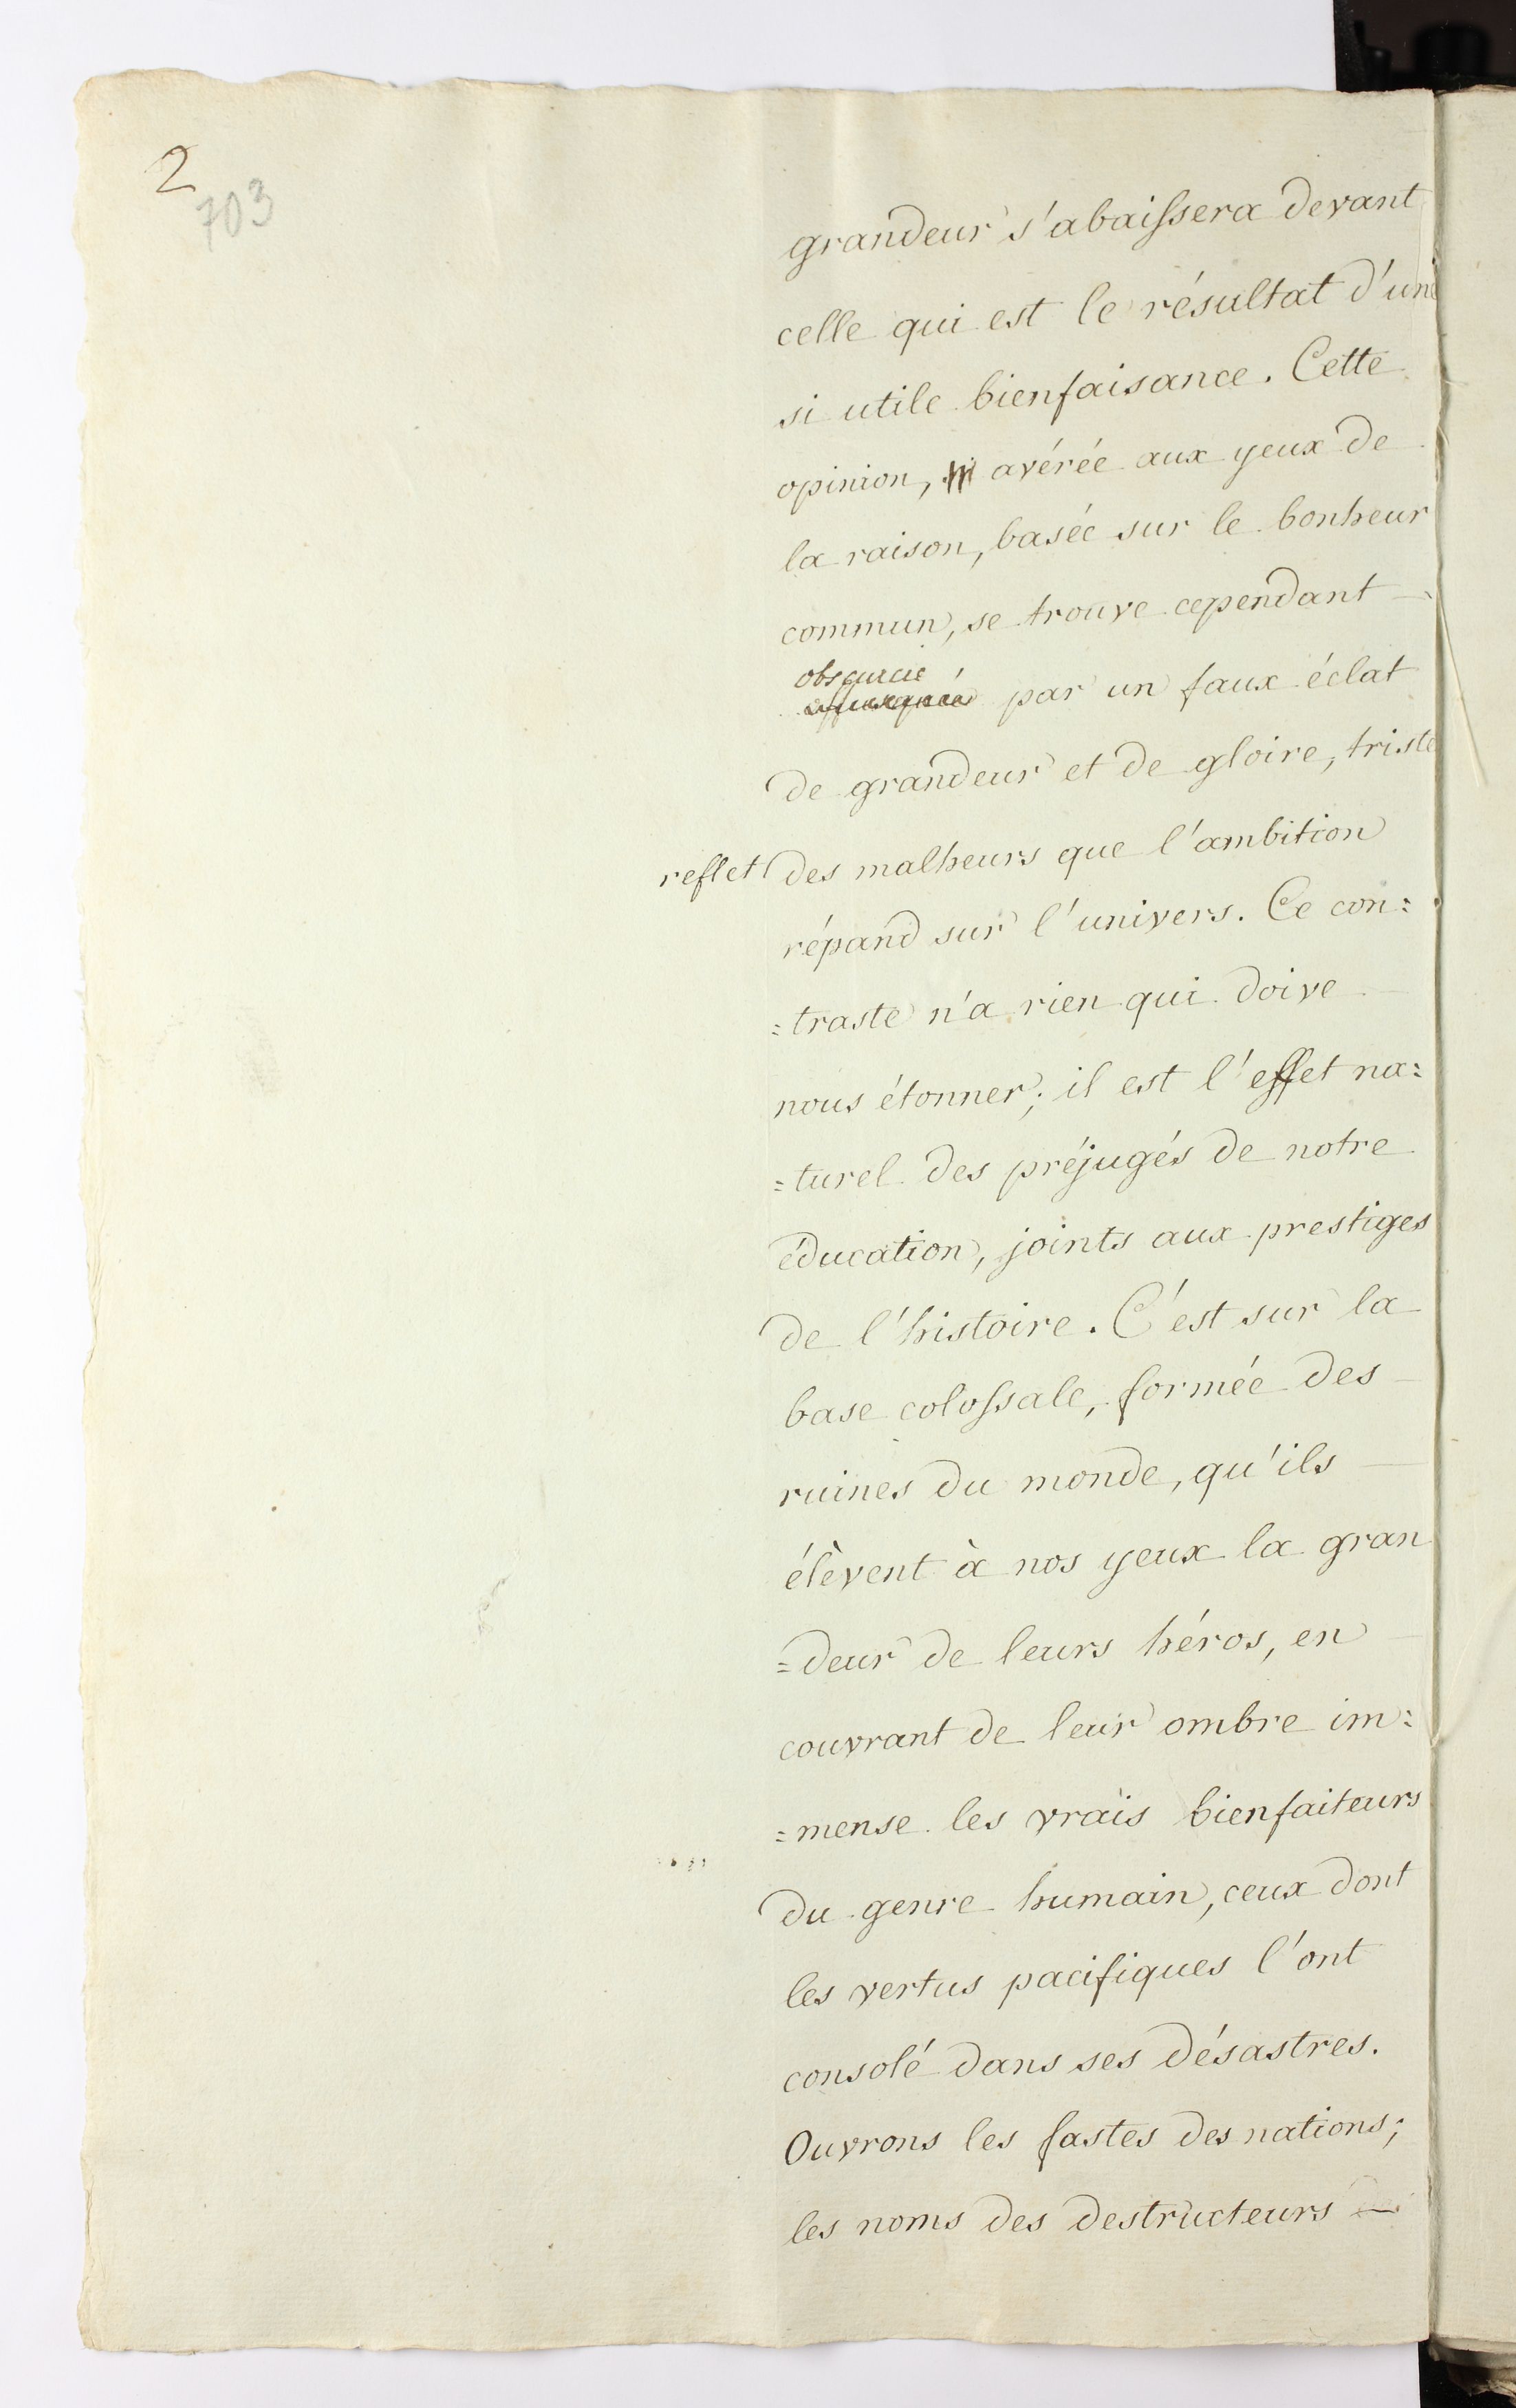 2
703
grandeur s'abaissera devant
celle qui est le résultat d'une
si utile bienfaisance. Cette
opinion, avérée aux yeux de
la raison, basée sur le bonheur
commun, se trouve cependant
obscurcie
offusquée par un faux éclat
de grandeur et de gloire, triste
reflet des malheurs que l'ambition
répand sur l'univers. Ce con=
=traste n'a rien qui doive
nous étonner; il est l'effet na=
=turel des préjugés de notre
éducation, joints aux prestiges
de l'histoire. C'est sur la
base colossale, formée des
ruines du monde, qu'ils
élèvent à nos yeux la gran
=deur de leurs héros, en
couvrant de leur ombre im=
=mense les vrais bienfaiteurs
du genre humain, ceux dont
les vertus pacifiques l'ont
consolé dans ses désastres.
Ouvrons les fastes des nations;
les noms des destructeurs